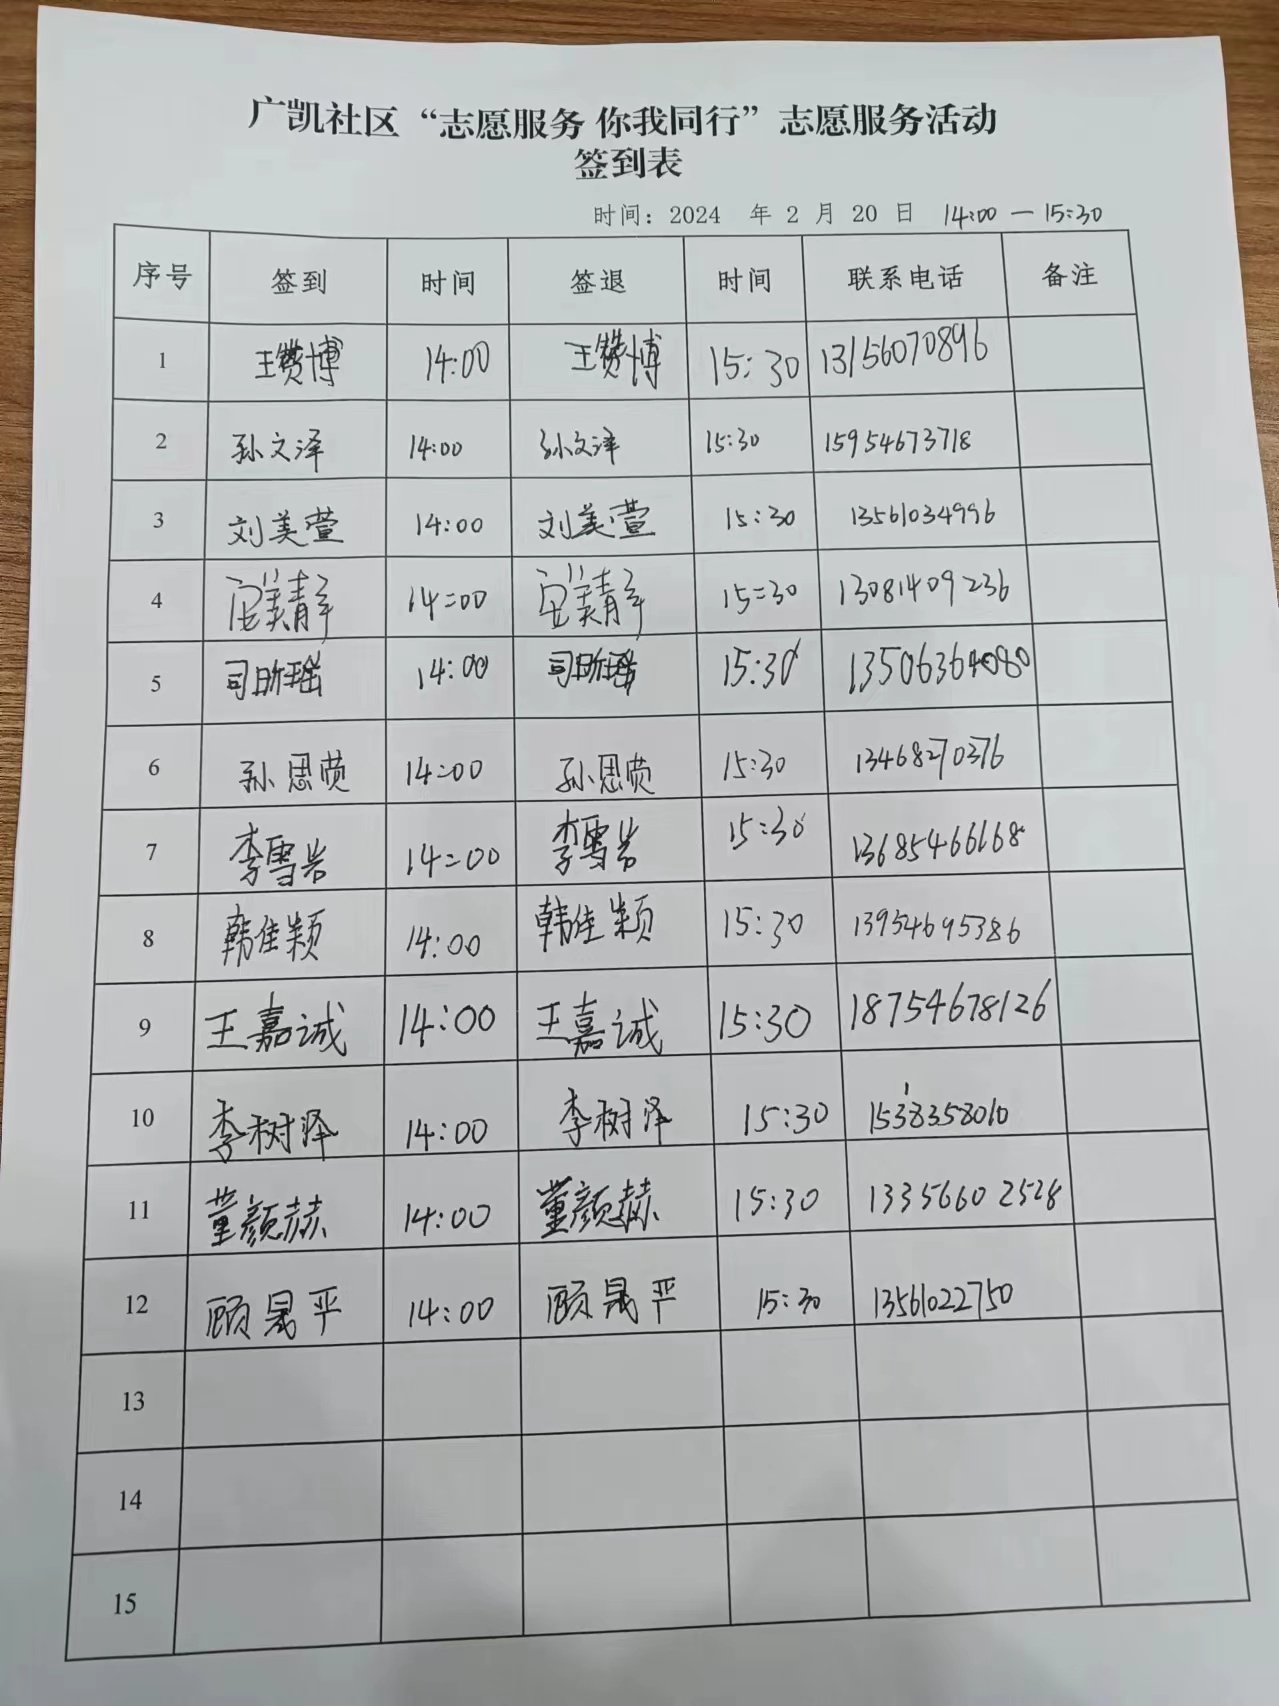 广凯社区“志愿服务 你我同行”志愿服务活动
签到表
时间：2024 年 2 月 20 日 14:00—15:30
序号 签到 时间 签退 时间 联系电话 备注
1 王赞博 14:00 王赞博 15:30 13156070896
2 孙文泽 14:00 孙文泽 15:30 15954673718
3 刘美萱 14:00 刘美萱 15:30 13561034996
4 14:00 15:30 13081409236
5 14:00 15:30 13506364080
6 孙思荧 14:00 孙思荧 15:30 13468270376
7 李雪岩 14:00 李雪岩 15:30 13685466168
8 韩佳颖 14:00 韩佳颖 15:30 13954695386
9 王嘉诚 14:00 王嘉诚 15:30 18754678126
10 李树泽 14:00 李树泽 15:30
11 董颜赫 14:00 董颜赫 15:30 13356602528
12 顾晟平 14:00 顾晟平 15:30 13561022750
13
14
15